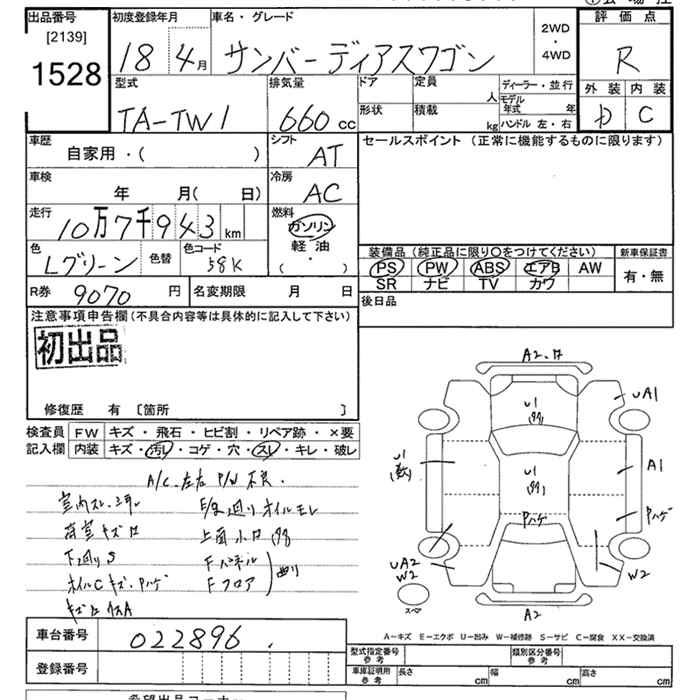 出品番号 初度登録年月 車名・グレード 評価点
[2139]
1528
18 4月 サンバーディアスワゴン 2WD・4WD R
型式 排気量 ドア 定員 人 ディーラー・並行 外装 内装
形状 積載 kg モデル年式 年 ハンドル 左・右
TA-TW1 660cc C
車歴 シフト セールスポイント (正常に機能するものに限ります)
自家用・( ) AT
車検 冷房
年 月( 日) AC
走行 燃料
10万7千943km ガソリン
軽油
( ・ )
色 色替 色コード
Lグリーン 58K
装備品(純正品に限り○をつけてください) 新車保証書
PS PW ABS エアB AW 有・無
SR ナビ TV カワ
R券 9070円 名変期限 月 日 後日品
注意事項申告欄(不具合内容等は具体的に記入して下さい)
初出品
修復歴 有 〔箇所 〕
検査員 FW キズ・飛石・ヒビ割・リペア跡・×要
記入欄 内装 キズ・汚レ・コゲ・穴・スレ・キレ・破レ
A/C、左右P/W不良
下廻りS
オイルC キズ・Pハゲ
Fパネル
Fフロア
A2
U1
UA1
U1
A1
U1
Pハゲ
Pハゲ
UA2
W2
W2
スペア
A2
A-キズ E-エクボ U-凹み W-補修跡 S-サビ C-腐食 XX-交換済
車台番号 022896
登録番号
型式指定番号 参考 類別区分番号 参考
車庫証明用 参考 長さ cm 幅 cm 高さ cm